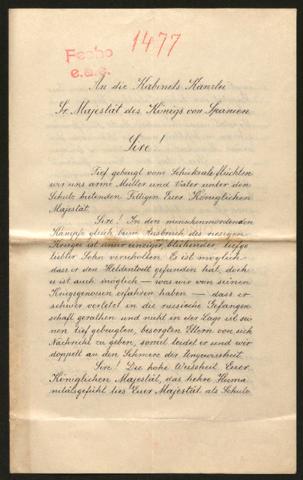 Fecho
e.a.e.
1477
An die Kabinets Kanzlei
Sr Majestät des Königs von Spanien
Sire!
Tief gebeugt vom Schicksale flüchten
wir uns arme Mutter und Vater unter den
Schutz bietenden Fittigen Eurer Königlichen
Majestät.
Sire! In den menschenmordenden
Kämpfe gleich beim Ausbruch des riesigen
Krieges ist unser einziger, blühender, tiefge
liebter Sohn verschollen. Es ist möglich
dass er den Heldentodt gefunden hat, doch
ist auch möglich – was wir von seinen
Kriegsgenossen erfahren haben – dass er
schwer verletzt in die russische Gefangen
schaft gerathen und nicht in der Lage ist sei
nen tief gebeugten, besorgten Eltern von sich
Nachricht zu geben, somit leidet er und wir
doppelt an den Schmerz der Ungewissheit.
Sire! Die hohe Weisheit Eurer
Königlichen Majestät, das hehre Huma
nitätsgefühl lies Euer Majestät als Schutz